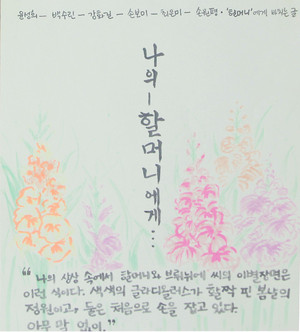 윤성희 — 백수린 — 강화길 — 손보미 — 최은미 — 손원평 · '할머니'에게 바치는 글
나의 — 할머니에게 ...
" 나의 상상 속에서 할머니와 브뤼니에 씨의 이별장면은
이런 식이다. 색색의 글라디올러스가 활짝 핀 봄날의
정원이고, 둘은 처음으로 손을 잡고 있다.
아무 말 없이. "